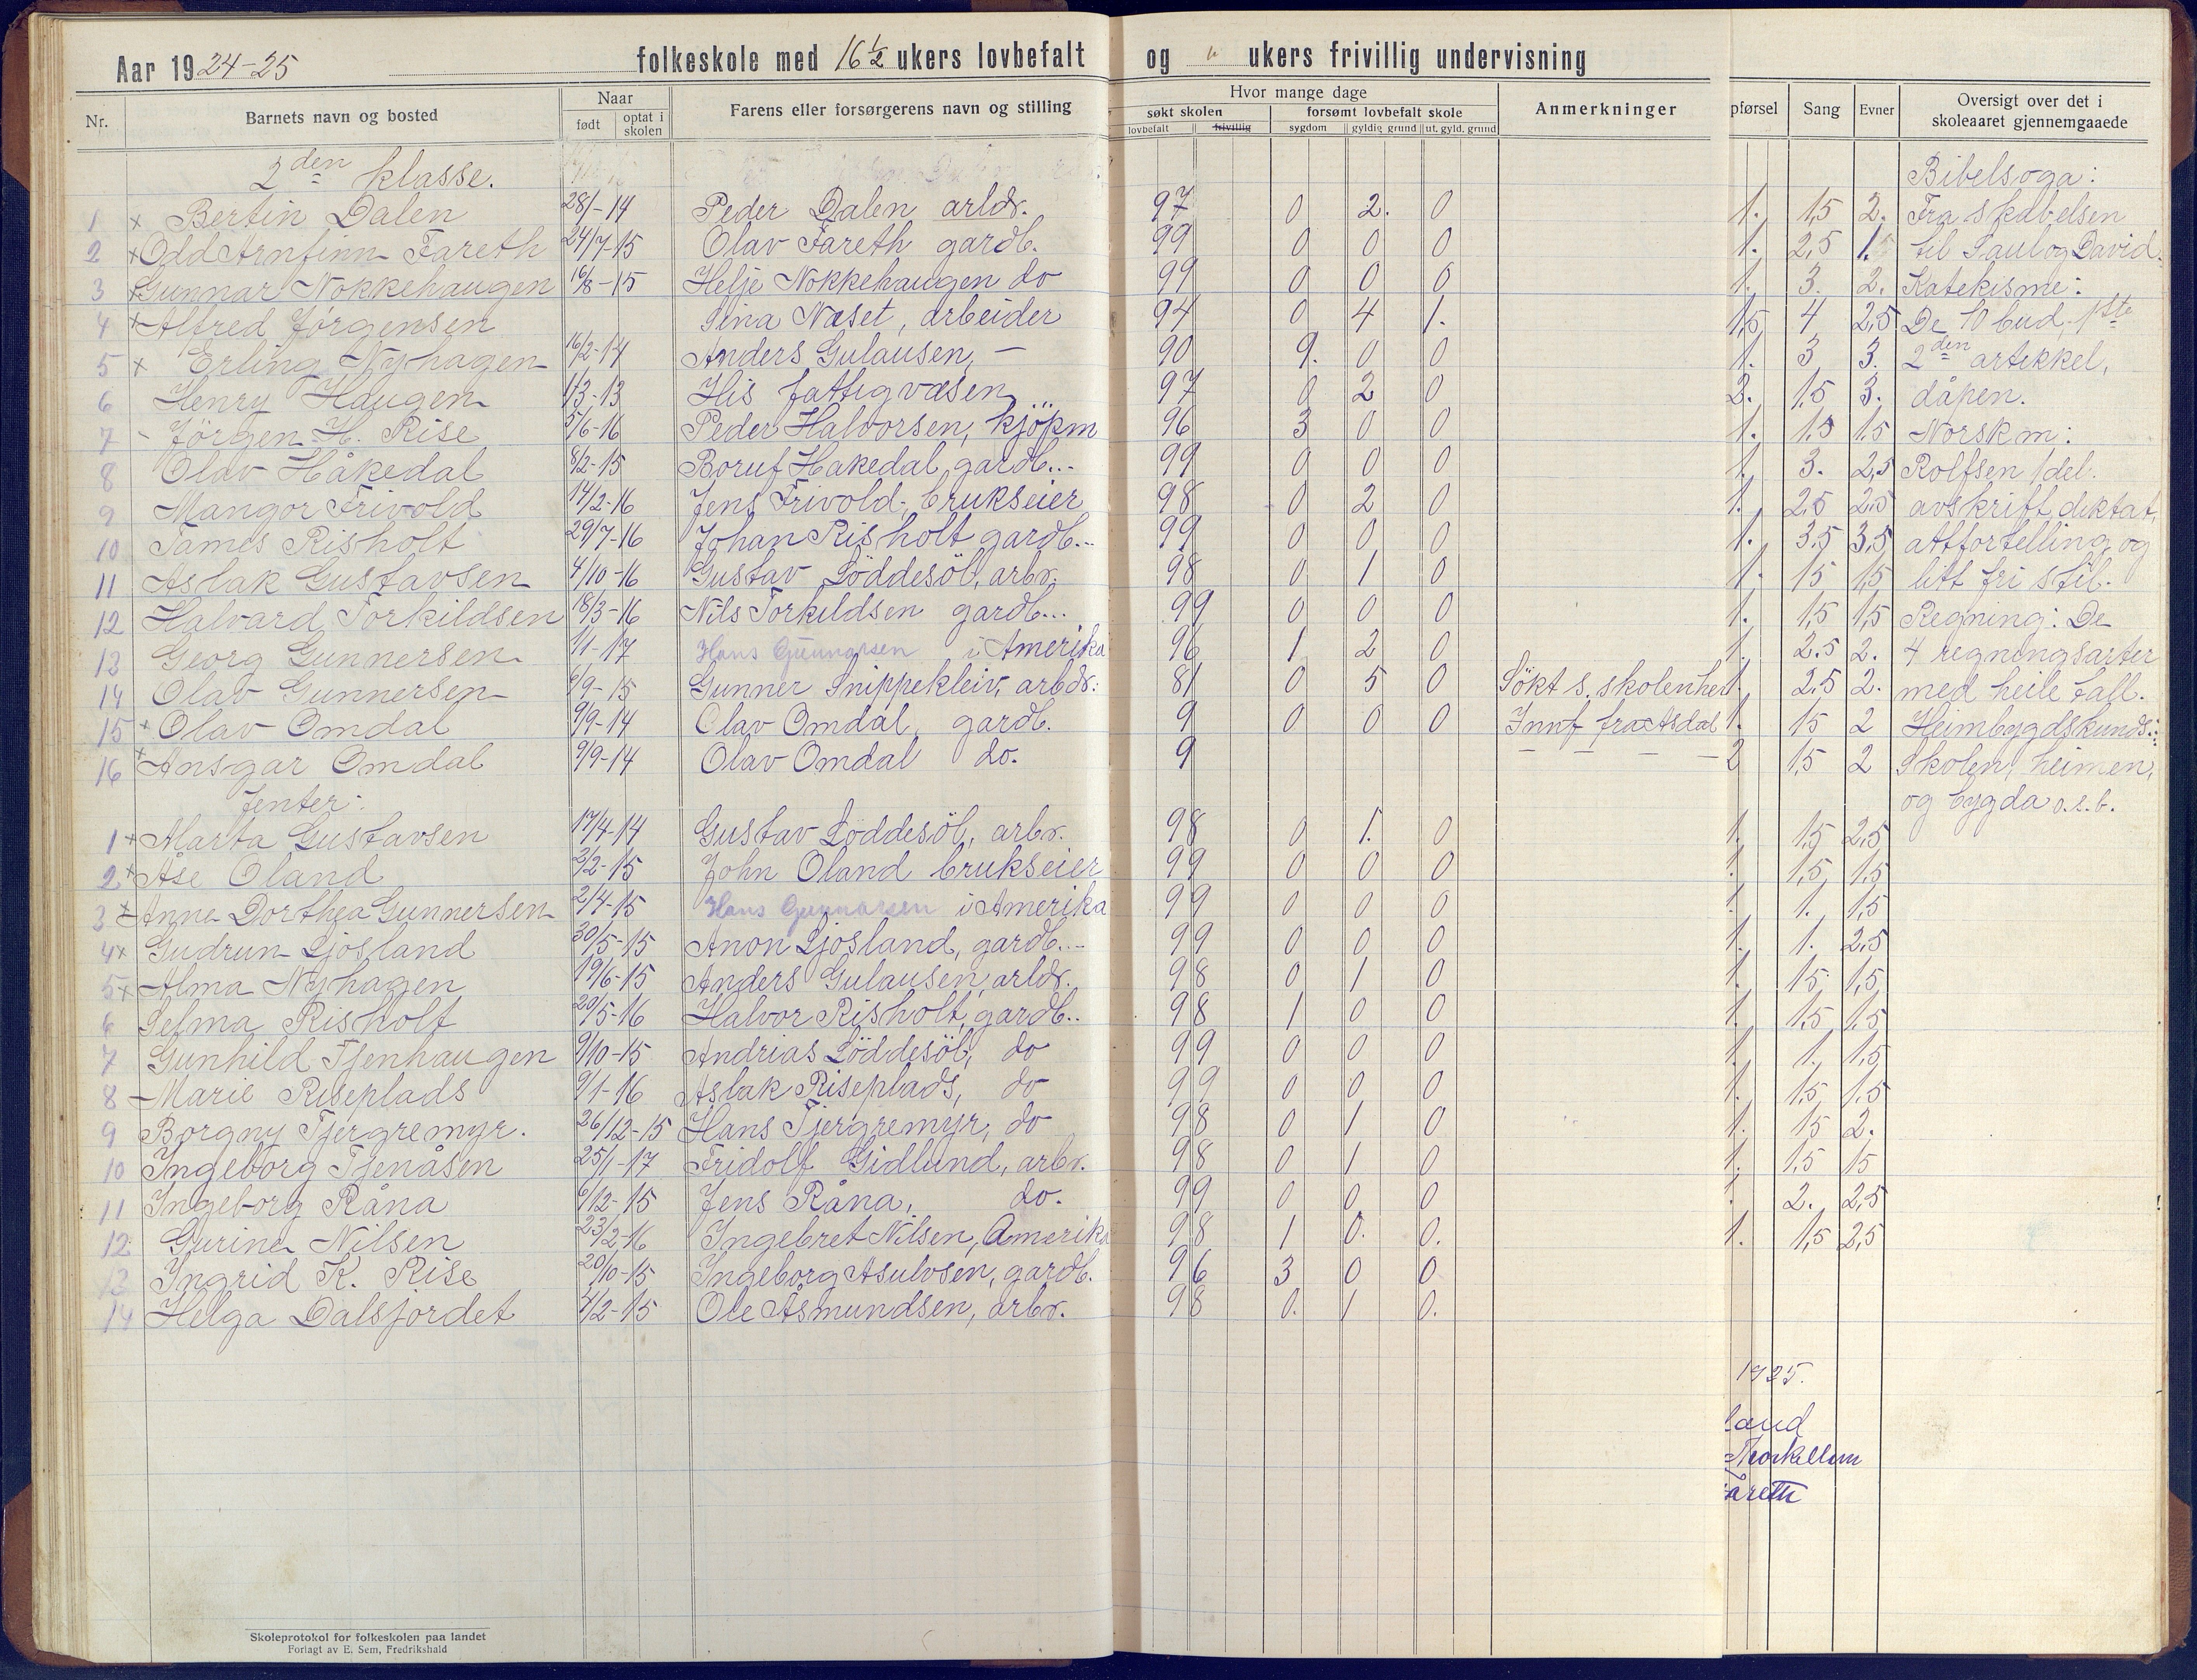 Aar 1924-25 folkeskole med 16½ ukers lovbefalt og " ukers frivillig undervisning
Nr. Barnets navn og bosted Naar født optat i skolen Farens eller forsørgerens navn og stilling Hvor mange dage søkt skolen lovbefalt frivillig forsømt lovbefalt skole sygdom gyldig grund ut. gyld. grund Anmerkninger pførsel Sang Evner Oversigt over det i skoleaaret gjennemgaaede
2den klasse. Bibelsoga:
1 x Bertin Dalen 28/1-14 Peder Dalen arbdr. 97 0 2. 0 1. 1,5 2. Fra skabelsen
2 x Odd Arnfinn Fareth 24/7-15 Olav Fareth gardb. 99 0 0 0 1. 2,5 1.5 til Saul og David.
3 x Gunnar Nokkehaugen 16/8-15 Helje Nokkehaugen do 99 0 0 0 1. 3. 2. Katekisme:
4 x Alfred Jørgensen Sina Næset, arbeider 94 0 4 1. 1,5 4 2,5 De 10 bud. 1ste
5 x Erling Nyhagen 16/2-14 Anders Gulausen, — 90 9. 0 0 1. 3 3. 2den artikkel,
6 Henry Haugen 1/3-13 His fattigvæsen 97 0 2 0 2. 1,5 3. dåpen.
7 - Jörgen H. Rise 5/6-16 Peder Halvorsen, kjöpm 96 3 0 0 1. 1,5 1,5 Norsk m:
8 Olav Håkedal 8/2-15 Boruf Hakedal, gardb... 99 0 0 0 1. 3. 2,5 Rolfsen 1 del.
9 Mangor Frivold 14/2-16 Jens Frivold, brukseier 98 0 2 0 1. 2,5 2,5 avskrift, diktat,
10 James Risholt 29/7-16 Johan Risholt gardb... 99 0 0 0 1. 3,5 3,5 attfortelling, og
11 Aslak Gustavsen 4/10-16 Gustav Löddesöl, arbr. 98 0 1 0 1. 15 1,5 litt fri stil.
12 Halvard Torkildsen 18/3-16 Nils Torkildsen gardb... 99 0 0 0 1. 1,5 1,5 Regning: De
13 Georg Gunnersen 1/1-17 Hans Gunnarsen i Amerika 96 1 2 0 1. 2.5 2. 4 regningsarter
14 Olav Gunnersen 6/9-15 Gunner Snippekleiv, arbdr: 81 0 5 0 Sökt s. skolen her 1. 2,5 2. med heile tall.
15 x Olav Omdal 9/9-14 Olav Omdal, gardb. 9 0 0 0 Innf fra Asdal 1. 15 2 Heimbygdskunds.:
16 x Ansgar Omdal 9/9-14 Olav Omdal do. 9 — — — — 2 1,5 2 Skolen, heimen,
Jenter: og bygda o.s.b.
1 x Marta Gustavsen 17/4-14 Gustav Löddesöl, arbr. 98 0 1. 0 1. 1,5 2,5
2 x Åse Oland 2/2-15 John Oland brukseier 99 0 0 0 1. 1,5 1,5
3 x Anne Dorthea Gunnersen 2/4-15 Hans Gunnarsen i Amerika 99 0 0 0 1. 1. 1,5
4 x Gudrun Ljosland 30/5-15 Anon Ljosland, gardb... 99 0 0 0 1. 1. 2,5
5 x Alma Nyhagen 19/6-15 Anders Gulausen, arbdr. 98 0 1 0 1. 15 1,5
6 Selma Risholt 20/5-16 Halvor Risholt, gardb.. 98 1 0 0 1. 1,5 1.5
7 Gunhild Tjenhaugen 9/10-15 Andrias Löddesöl, do 99 0 0 0 1. 1. 1,5
8 Marie Riseplads 9/1-16 Aslak Riseplads, do 99 0 0 0 1. 1,5 1.5
9 Borgny Tjergremyr. 26/12-15 Hans Tjergremyr, do 98 0 1 0 1. 15 2.
10 Ingeborg Tjenåsen 25/1-17 Fridolf Gidlund, arbr. 98 0 1 0 1. 1,5 15
11 Ingeborg Råna 6/12-15 Jens Råna, do. 99 0 0 0 1. 2. 2,5
12 Gurine Nilsen 23/2-16 Ingebret Nilsen, Amerika 98 1 0. 0. 1. 1,5 2,5
13 Ingrid K. Rise 20/10-15 Ingeborg Asulvsen, gardb. 96 3 0 0
14 Helga Dalsjordet 4/2-15 Ole Åsmundsen, arbr. 98 0. 1 0.
1925.
land
Thorkelsen
areth
Skoleprotokol for folkeskolen paa landet
Forlagt av E. Sem, Fredrikshald